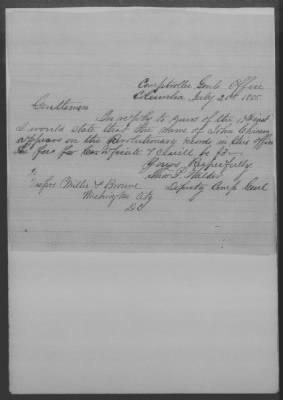 Comptroller Genl. Office
Columbia July 21st
Gentlemen
In reply to yours of the
I would state that the name of John
appears on the Revolutionary records in this office
The fees for certificate & will be $2
Yours Respectfully
To
Messrs Willis & Browne
Deputy Comp Genl
Washington City
DC